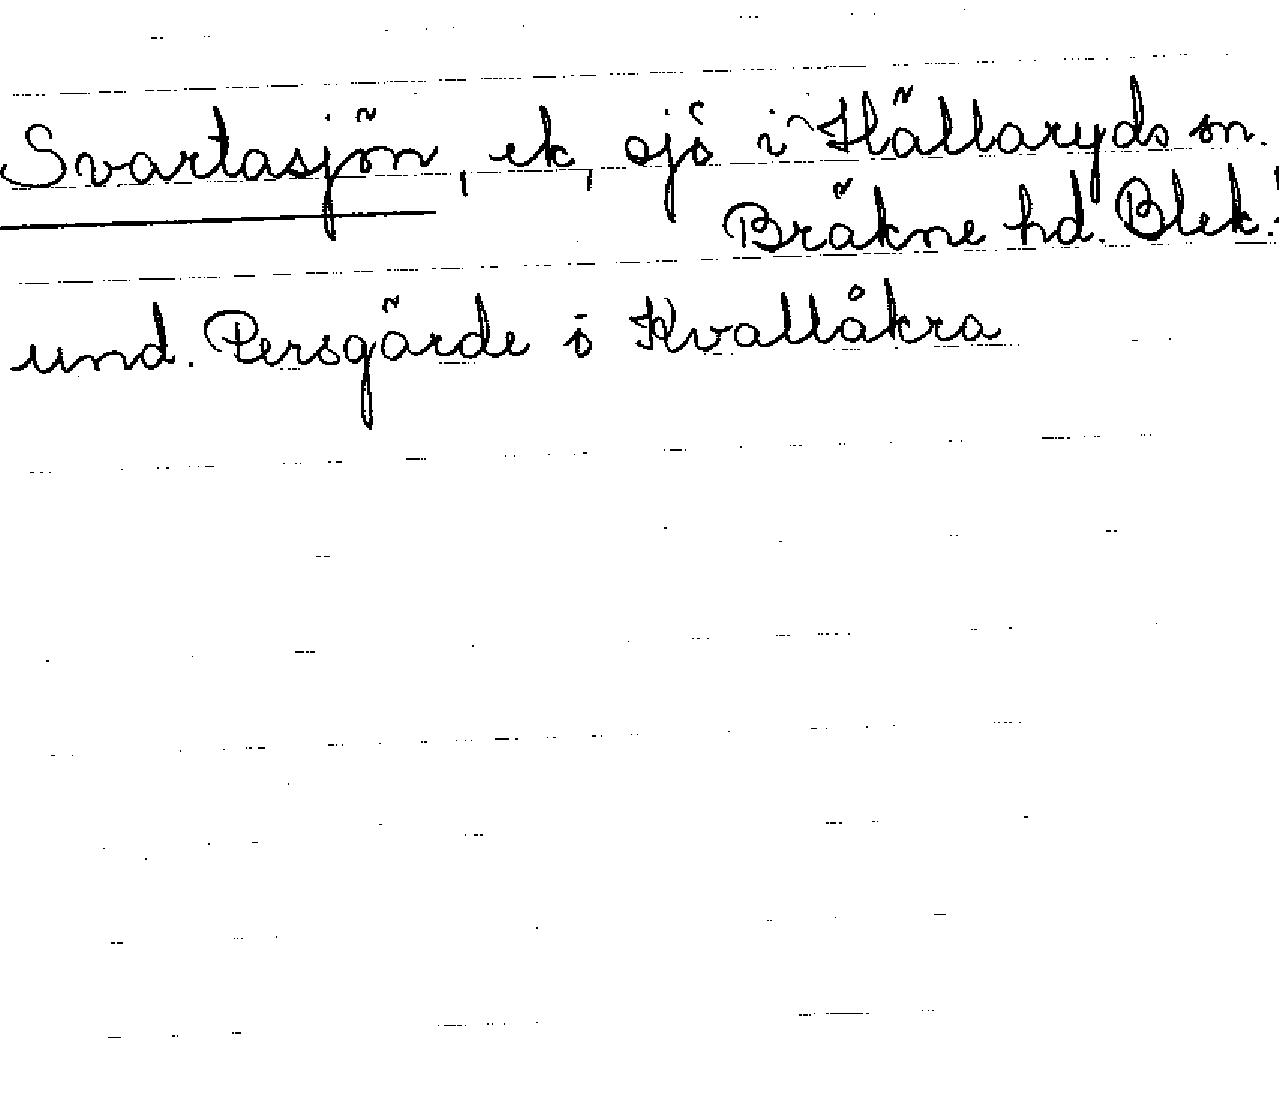 Svartasjön, ek, sjö i Hällaryds sn.
Bräkne hd. Blek.
und. Persgärde i Kvallåkra